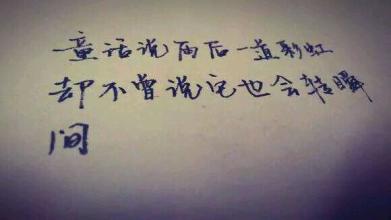 童话说雨后一道彩虹
却不曾说它也会转瞬
间